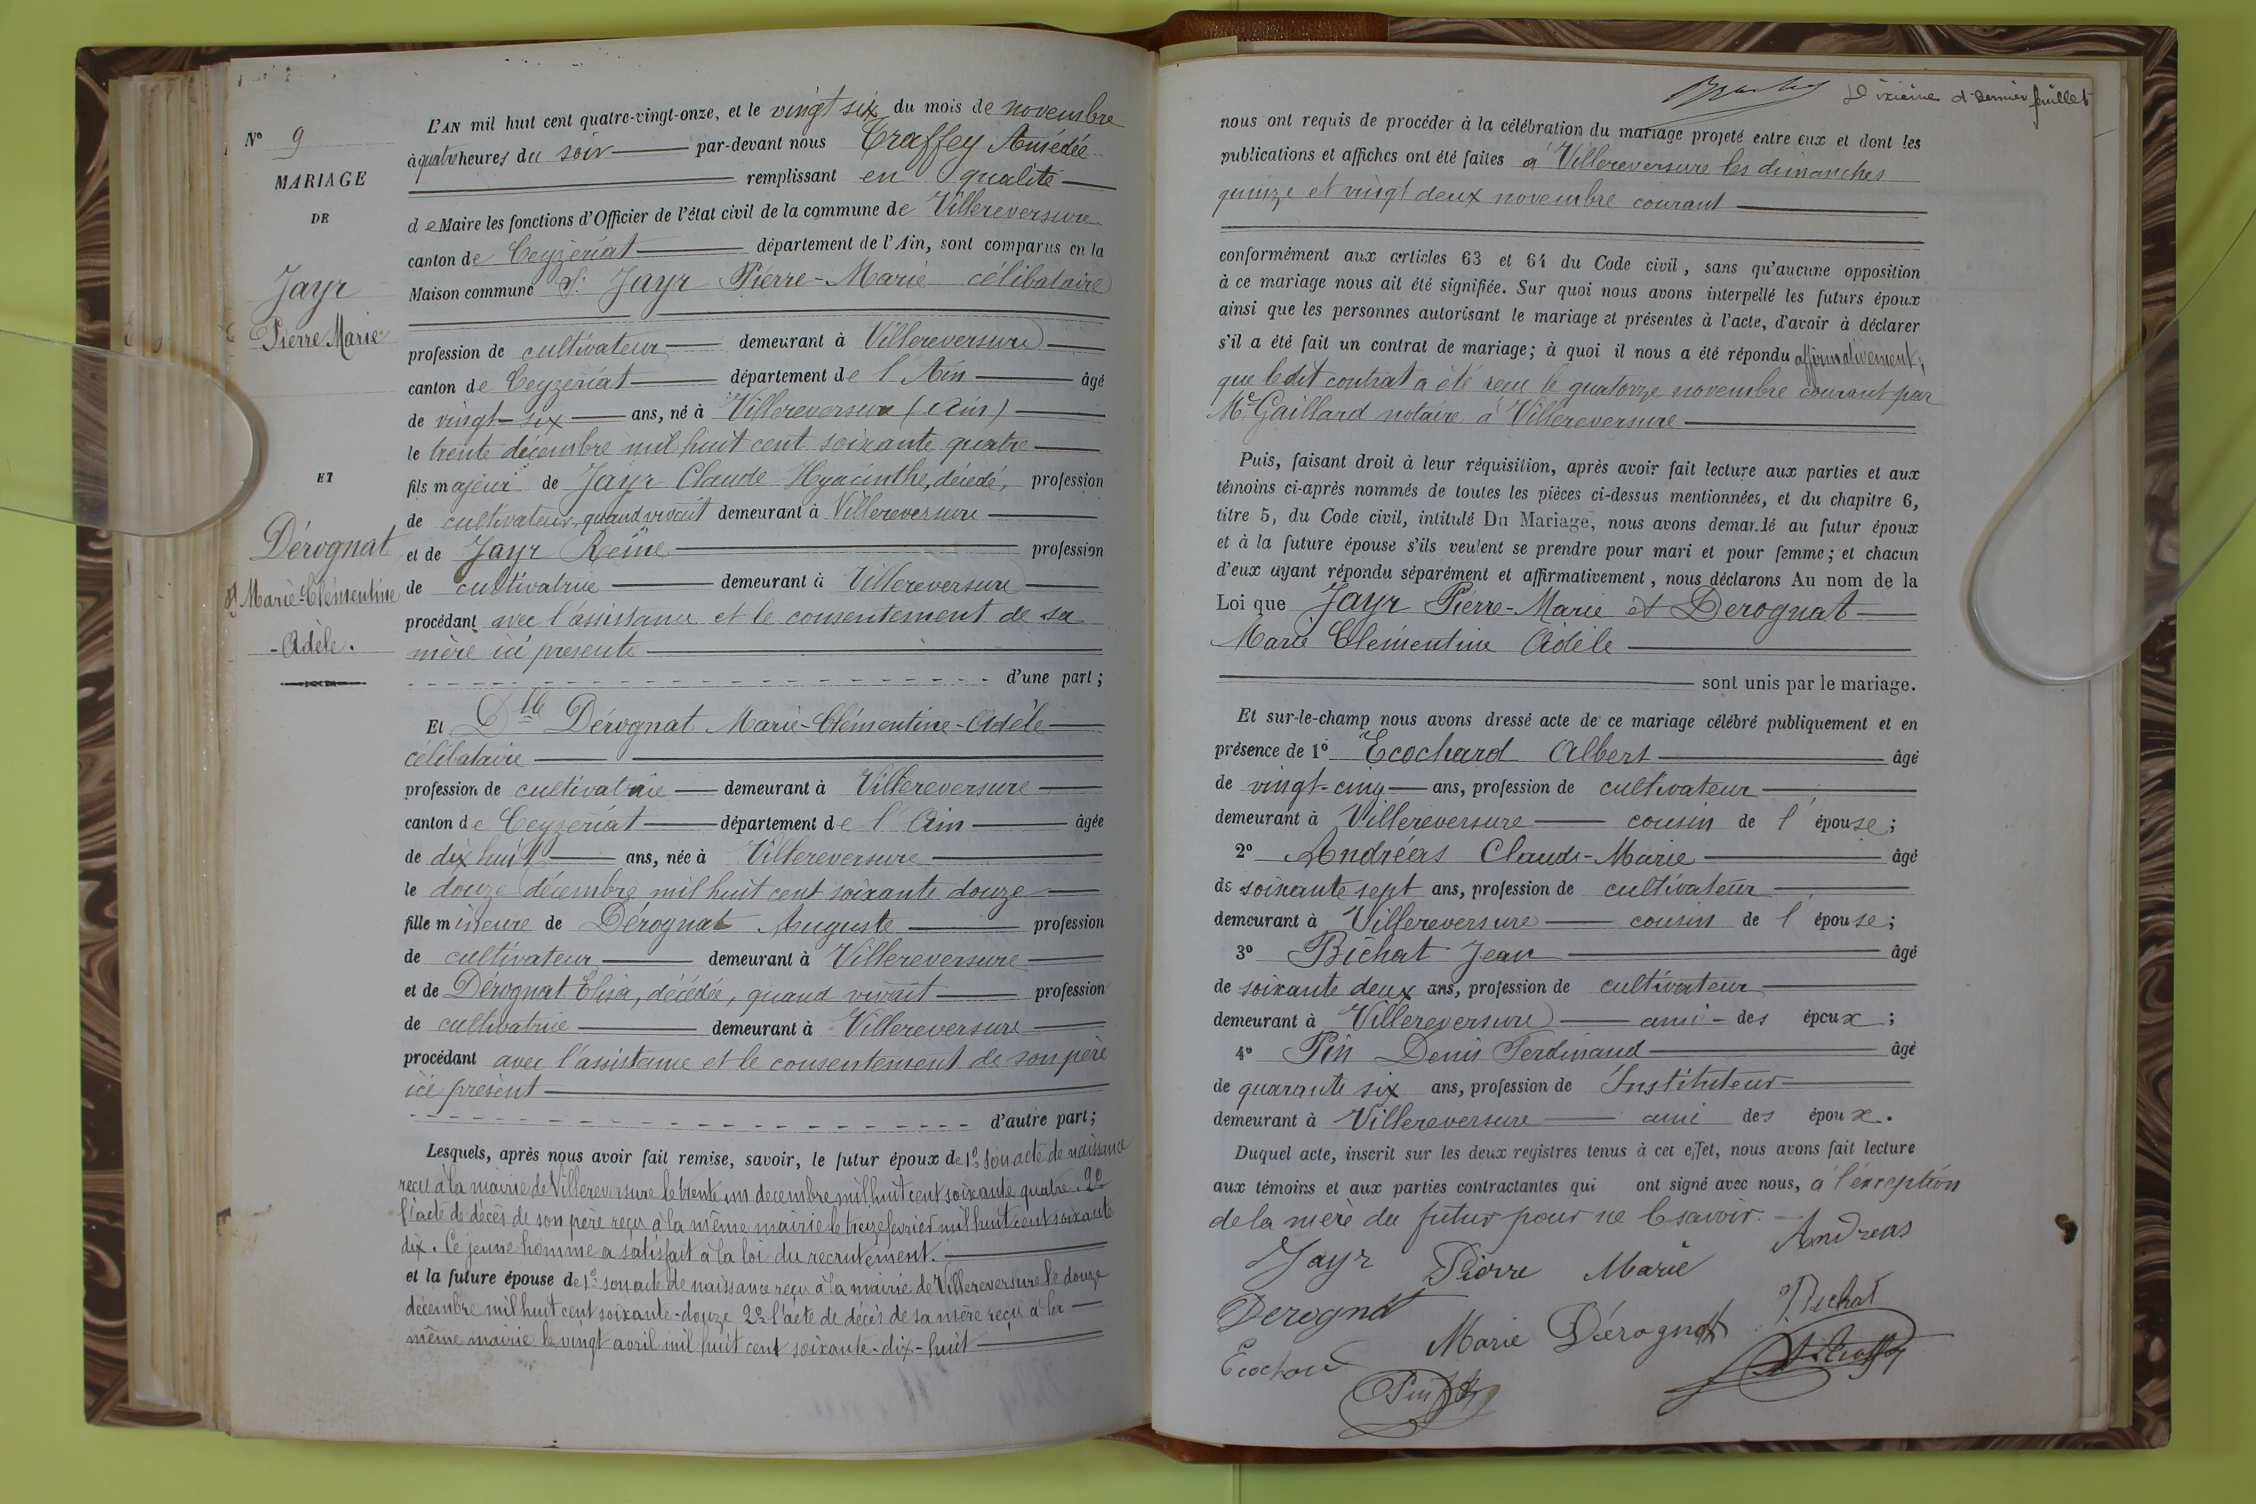 N° 9
MARIAGE
DE
Jayr
Pierre Marie
ET
Dérognat
Marie-Clémentine
-Adèle.
L'AN mil huit cent quatre-vingt-onze, et le vingt six du mois de novembre
à quatre heures du soir par-devant nous Traffey Amédée
remplissant en qualité
de Maire les fonctions d'Officier de l'état civil de la commune de Villereversure
canton de Ceyzériat département de l'Ain, sont comparus en la
Maison commune Sr Jayr Pierre-Marie célibataire
profession de cultivateur demeurant à Villereversure
canton de Ceyzériat département de l'Ain âgé
de vingt-six ans, né à Villereversure (Ain)
le trente décembre mil huit cent soixante quatre
fils majeur de Jayr Claude Hyacinthe, décédé, profession
de cultivateur, quand vivait demeurant à Villereversure
et de Jayr Reine profession
de cultivatrice demeurant à Villereversure
procédant avec l'assistance et le consentement de sa
mère ici présente
d'une part;
Et Dlle Dérognat Marie-Clémentine-Adèle
célibataire
profession de cultivatrice demeurant à Villereversure
canton de Ceyzériat département de l'Ain âgée
de dix huit ans, née à Villereversure
le douze décembre mil huit cent soixante douze
fille mineure de Dérognat Auguste profession
de cultivateur demeurant à Villereversure
et de Dérognat Elisa, décédée, quand vivait profession
de cultivatrice demeurant à Villereversure
procédant avec l'assistance et le consentement de son père
ici présent
d'autre part;
Lesquels, après nous avoir fait remise, savoir, le futur époux de 1° son acte de naissance
reçu à la mairie de Villereversure le trente un decembre mil huit cent soixante quatre. 2°
l'acte de décès de son père reçu à la même mairie le treize fevrier mil huit cent soixante
dix. Ce jeune homme a satisfait à la loi du recrutement.
et la future épouse de 1° son acte de naissance reçu à la mairie de Villereversure le douze
décembre mil huit cent soixante-douze 2° l'acte de décès de sa mère reçu à la
même mairie le vingt avril mil huit cent soixante-dix-huit
Dixième et dernier feuillet
nous ont requis de procéder à la célébration du mariage projeté entre eux et dont les
publications et affiches ont été faites à Villereversure les dimanches
quinze et vingt deux novembre courant
conformément aux articles 63 et 64 du Code civil, sans qu'aucune opposition
à ce mariage nous ait été signifiée. Sur quoi nous avons interpellé les futurs époux
ainsi que les personnes autorisant le mariage et présentes à l'acte, d'avoir à déclarer
s'il a été fait un contrat de mariage; à quoi il nous a été répondu affirmativement;
que ledit contrat a été reçu le quatorze novembre courant par
Me Gaillard notaire à Villereversure
Puis, faisant droit à leur réquisition, après avoir fait lecture aux parties et aux
témoins ci-après nommés de toutes les pièces ci-dessus mentionnées, et du chapitre 6,
titre 5, du Code civil, intitulé Du Mariage, nous avons demandé au futur époux
et à la future épouse s'ils veulent se prendre pour mari et pour femme; et chacun
d'eux ayant répondu séparément et affirmativement, nous déclarons Au nom de la
Loi que Jayr Pierre-Marie et Derognat
Marie Clémentine Adèle
sont unis par le mariage.
Et sur-le-champ nous avons dressé acte de ce mariage célébré publiquement et en
présence de 1° Ecochard Albert âgé
de vingt-cinq ans, profession de cultivateur
demeurant à Villereversure cousin de l'épouse;
2° Andréas Claude-Marie âgé
de soixante sept ans, profession de cultivateur
demeurant à Villereversure cousin de l'épouse;
3° Bichat Jean âgé
de soixante deux ans, profession de cultivateur
demeurant à Villereversure ami des époux;
4° Pin Denis Ferdinand âgé
de quarante six ans, profession de Instituteur
demeurant à Villereversure ami des époux.
Duquel acte, inscrit sur les deux registres tenus à cet effet, nous avons fait lecture
aux témoins et aux parties contractantes qui ont signé avec nous, à l'exception
de la mère du futur pour ne le savoir.
Jayr Pierre Marie Andreas
Derognat Marie Dérognat Bichat
Pin